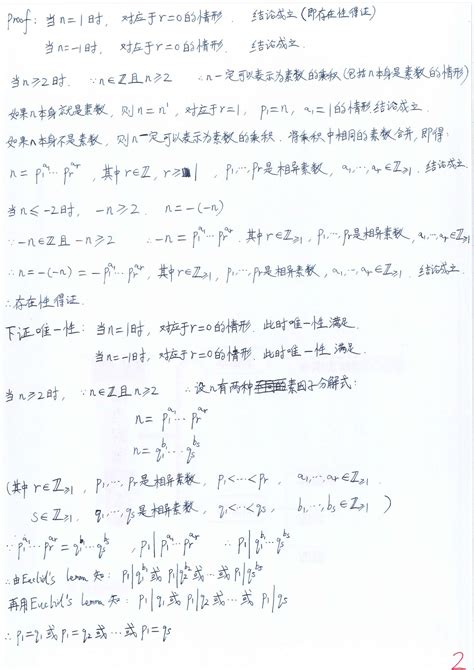 Proof: 当n=1时, 对应于r=0的情形. 结论成立(即存在性得证)
当n=-1时, 对应于r=0的情形. 结论成立.
当n≥2时, ∵n∈Z且n≥2 ∴n一定可以表示为素数的乘积(包括n本身是素数的情形)
如果n本身就是素数, 则n=n¹, 对应于r=1, p₁=n, a₁=1的情形. 结论成立.
如果n本身不是素数, 则n一定可以表示为素数的乘积. 将乘积中相同的素数合并, 即得:
n = p₁^{a₁}…p_r^{a_r}, 其中r∈Z, r≥1, p₁,…,p_r是相异素数, a₁,…,a_r∈Z≥₁. 结论成立.
当n≤-2时, -n≥2. n=-(-n)
∵-n∈Z且-n≥2 ∴-n = p₁^{a₁}…p_r^{a_r}, 其中r∈Z≥₁, p₁,…,p_r是相异素数, a₁,…,a_r∈Z≥₁
∴n=-(-n) = -p₁^{a₁}…p_r^{a_r}, 其中r∈Z≥₁, p₁,…,p_r是相异素数, a₁,…,a_r∈Z≥₁. 结论成立.
∴存在性得证.
下证唯一性: 当n=1时, 对应于r=0的情形. 此时唯一性满足.
当n=-1时, 对应于r=0的情形. 此时唯一性满足.
当n≥2时, ∵n∈Z且n≥2 ∴设n有两种素因子分解式:
n = p₁^{a₁}…p_r^{a_r}
n = q₁^{b₁}…q_s^{b_s}
(其中r∈Z≥₁, p₁,…,p_r是相异素数, p₁<…<p_r, a₁,…,a_r∈Z≥₁
s∈Z≥₁, q₁,…,q_s是相异素数, q₁<…<q_s, b₁,…,b_s∈Z≥₁ )
∵p₁^{a₁}…p_r^{a_r} = q₁^{b₁}…q_s^{b_s}, p₁|p₁^{a₁}…p_r^{a_r} ∴p₁|q₁^{b₁}…q_s^{b_s}
∴由Euclid's lemma知: p₁|q₁^{b₁}或p₁|q₂^{b₂}或…或p₁|q_s^{b_s}
再用Euclid's lemma知: p₁|q₁或p₁|q₂或…或p₁|q_s
∴p₁=q₁或p₁=q₂或…或p₁=q_s
2